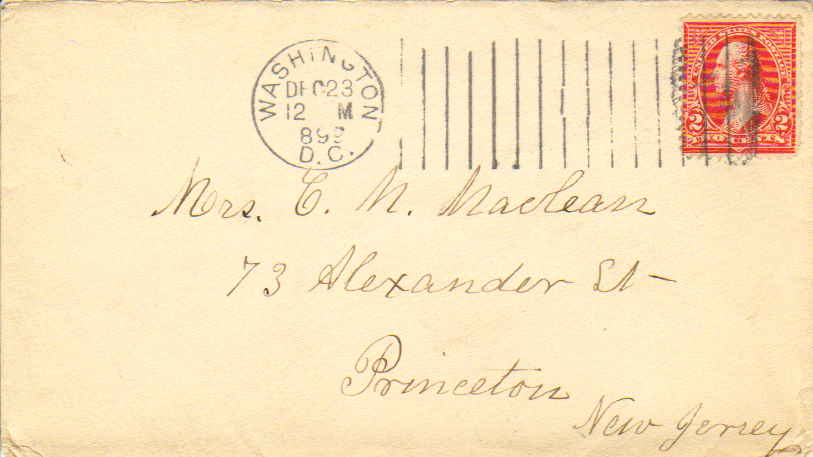 WASHINGTON
DEC 23
12 M
D.C.
UNITED STATES POSTAGE
2 2
Mrs. C. N. Maclean
73 Alexander St-
Princeton
New Jersey